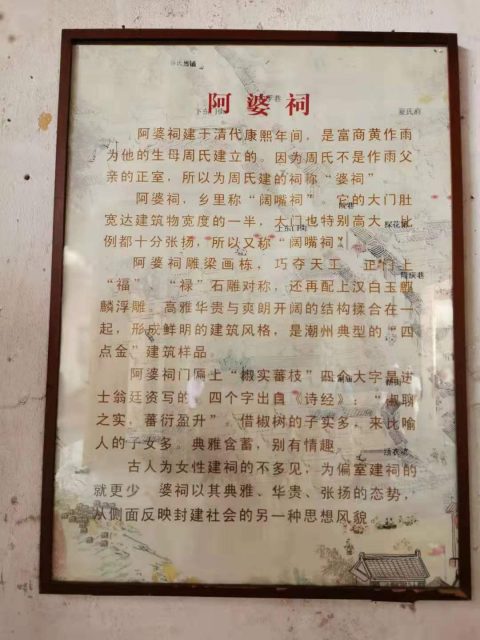 阿婆祠
阿婆祠建于清代康熙年间，是富商黄作雨
为他的生母周氏建立的。因为周氏不是作雨父
亲的正室，所以为周氏建的祠称“婆祠”
阿婆祠，乡里称“阔嘴祠”。它的大门肚
宽达建筑物宽度的一半，大门也特别高大，比
例都十分张扬，所以又称“阔嘴祠”
阿婆祠雕梁画栋，巧夺天工，正门上
“福”“禄”石雕对称，还再配上汉白玉麒
麟浮雕。高雅华贵与爽朗开阔的结构揉合在一
起，形成鲜明的建筑风格，是潮州典型的“四
点金”建筑样品
阿婆祠门匾上“椒实蕃枝”四个大字是进
士翁廷资写的，四个字出自《诗经》：“椒聊
之实，蕃衍盈升”。借椒树的子实多，来比喻
人的子女多。典雅含蓄，别有情趣
古人为女性建祠的不多见，为偏室建祠的
就更少 婆祠以其典雅、华贵、张扬的态势，
从侧面反映封建社会的另一种思想风貌